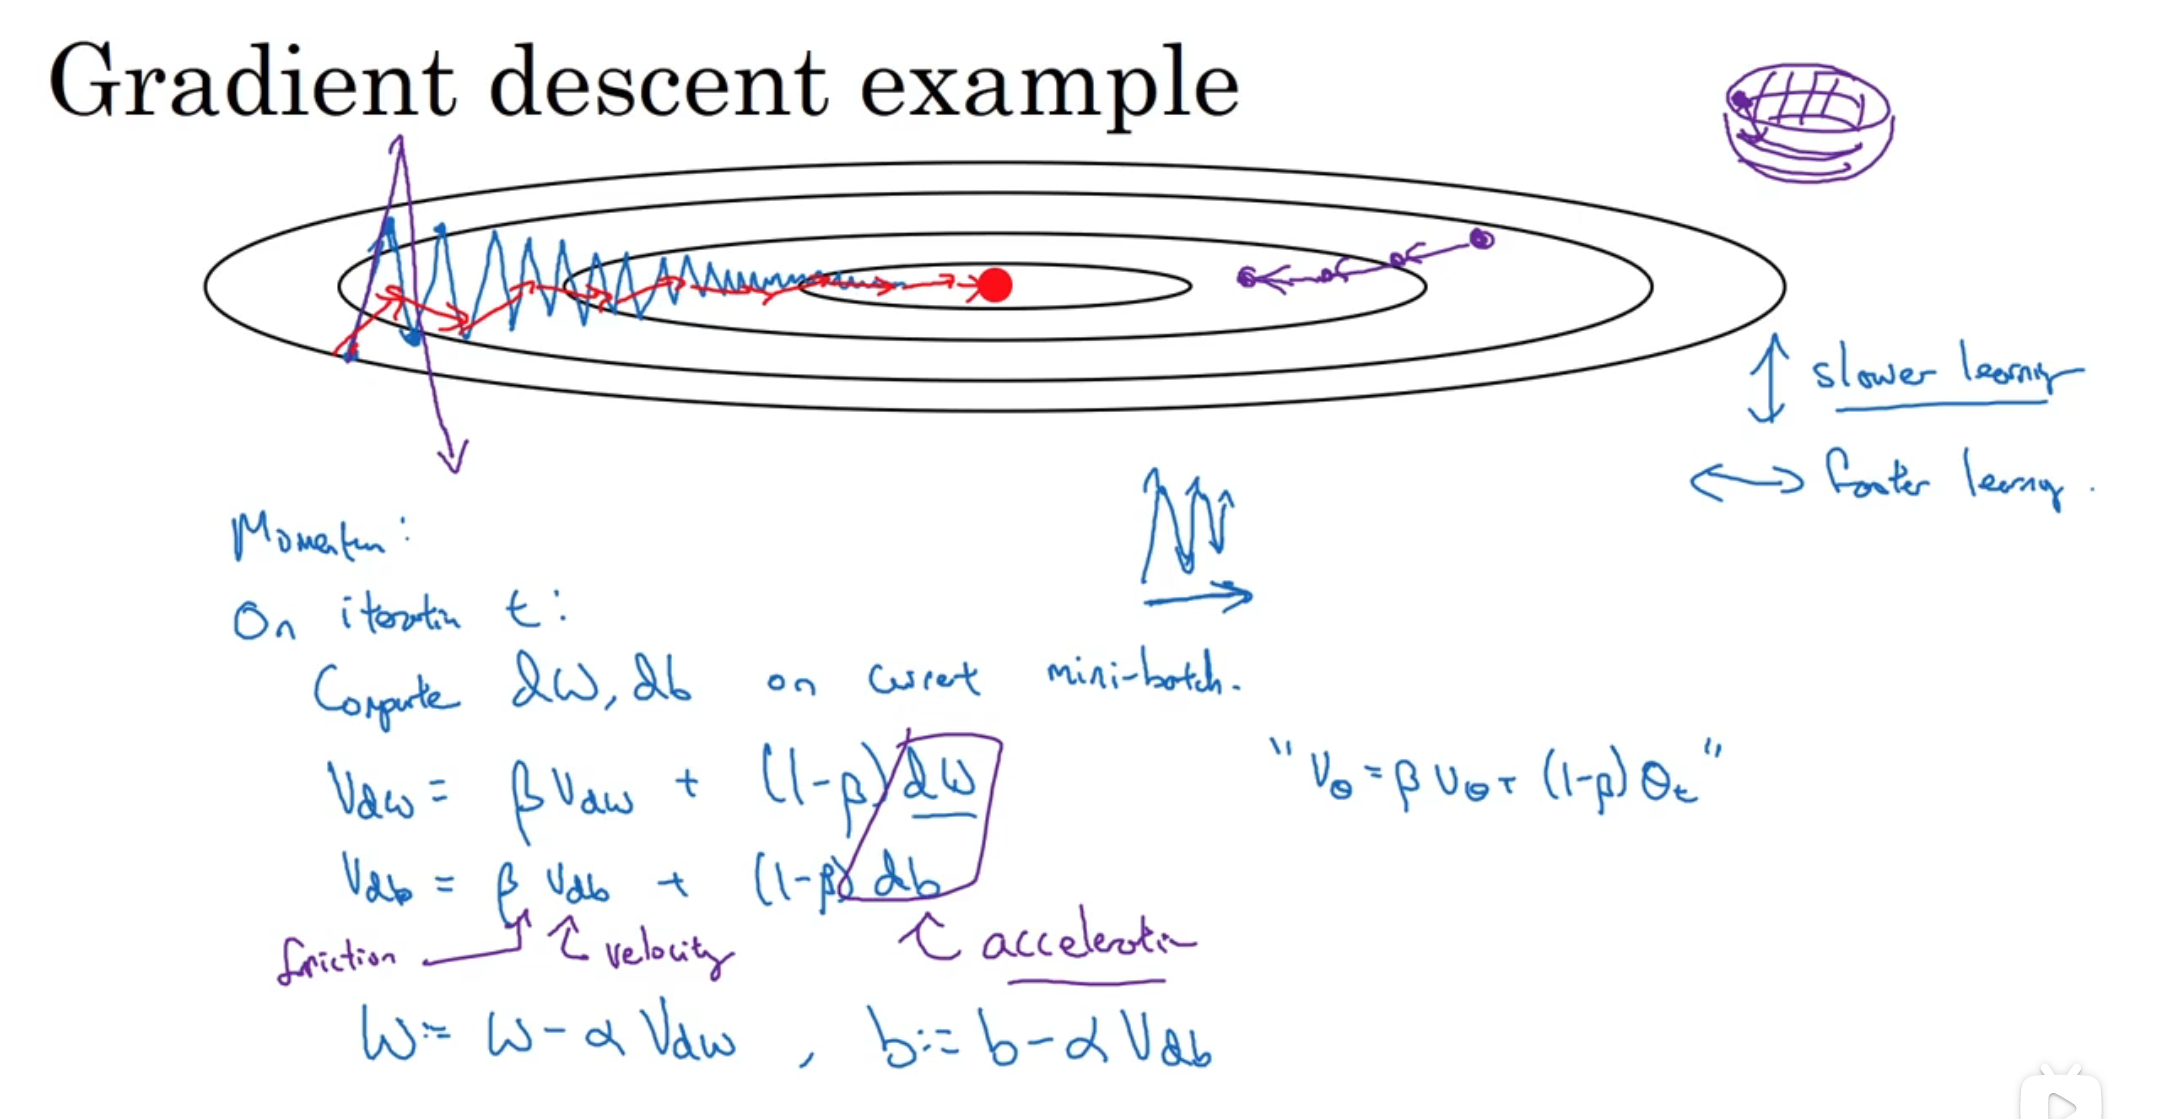 Gradient descent example
slower learning
faster learning.
Momentum:
On iteration t:
Compute dW, db on current mini-batch.
Vdw = βVdw + (1-β)dW
"Vθ = βVθ + (1-β)θt"
Vdb = βVdb + (1-β)db
friction
velocity
acceleration
W := W - αVdw , b := b - αVdb